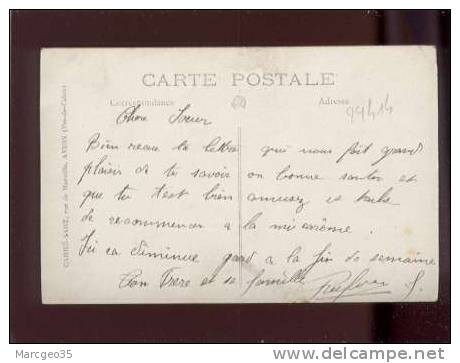 CARTE POSTALE
Correspondance
Adresse
99414
Chère Soeur
Bien reçue ta lettre qui nous fait grand
plaisir de te savoir en bonne santer et
que tu t'est bien amusez et
de recommencer a la mi carême.
Ici ca diminue a la fin de semaine
Ton Frere et sa famille
rue de Marseille, AVION (Pas-de-Calais)
© Margeo35
http://www.delcampe.net